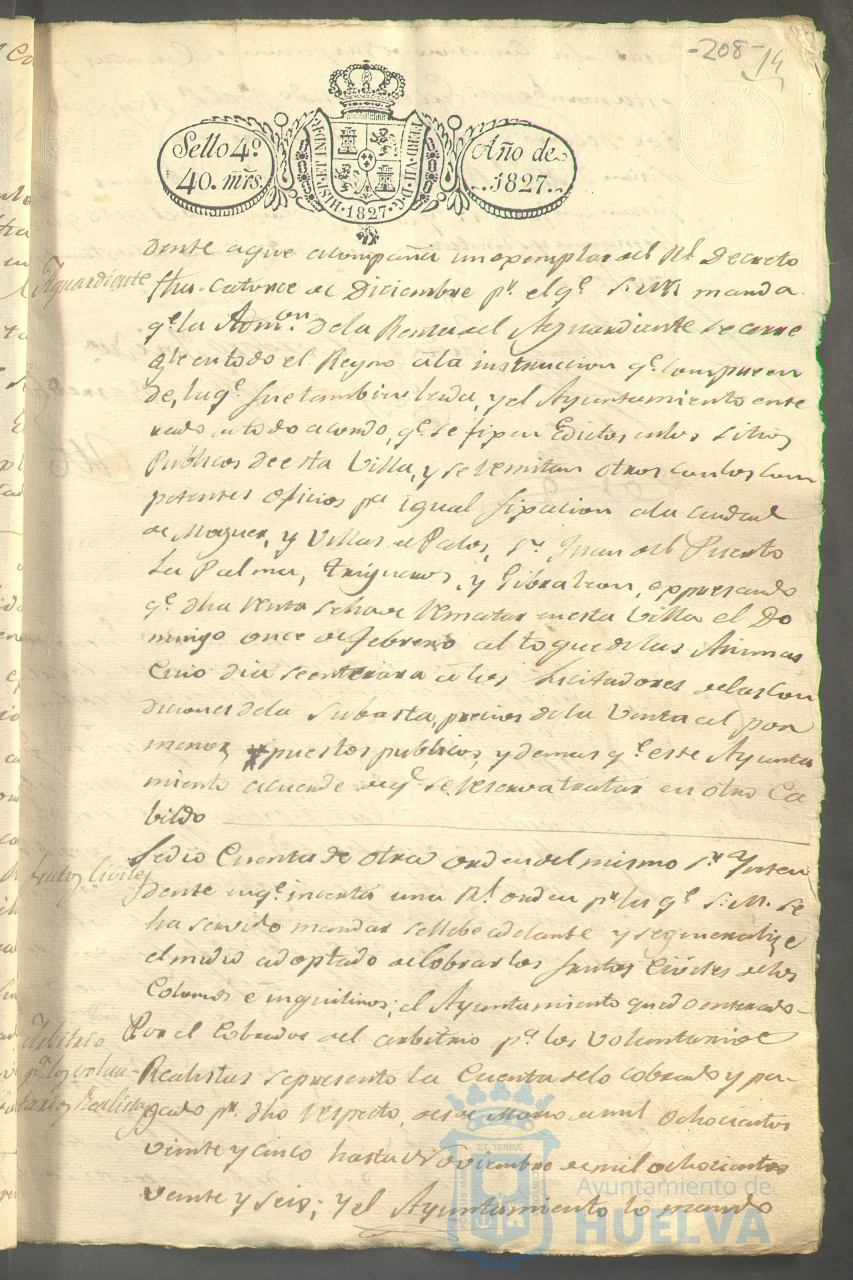 -208-
14
Sello 4º
40. mrs.
HISP. ET IND. R.
FERD. VII. D. G.
1827
Año de
1827
dente a que acompaña un exemplar del Rl. Decreto
Aguardiente
fha. Catorce de Diciembre pr. el qe. S. M. manda
qe. la Admon. de la Renta del Aguardiente se corre
gle en todo el Reyno a la instruccion qe. compreen
de, la qe. fue tambien leida, y el Ayuntamiento ente
rado de todo acordo, qe. se fixen Edictos en los sitios
Publicos de esta Villa, y se remitan otros con los com
petentes oficios pa. igual fixacion a la ciudad
de Moguer, y Villas de Palos, Sn. Juan del Puerto
La Palma, Trigueros, y Gibraleon, expresando
qe. dha renta se ha de rematar en esta Villa el Do
mingo once de febrero al toque de las Animas
Cuio dia se enterara a los Licitadores de las con
diciones de la Subasta, precios de la Venta al por
menor, puestos publicos, y demas qe. este Ayunta
miento acuerde de qe. se reserva tratar en otro Ca
bildo
Se dio Cuenta de otra orden del mismo Sr. Inten
Frutos Civiles
dente en qe. inserta una Rl. orden pr. la qe. S. M. se
ha servido mandar se llebe adelante y se generalize
el medio adoptado de cobrar los frutos Civiles de los
Colonos e inquilinos; el Ayuntamiento quedo enterado
Arbitrio
pa. los volun-
tarios Realistas
Por el Cobrador del arbitrio pa. los Voluntarios
Realistas se presento la Cuenta de lo cobrado y pa-
gado pr. dho respecto, desde Marzo de mil ochocientos
veinte y cinco hasta Noviembre de mil ochocientos
veinte y seis; y el Ayuntamiento la mando
Ayuntamiento de
HUELVA